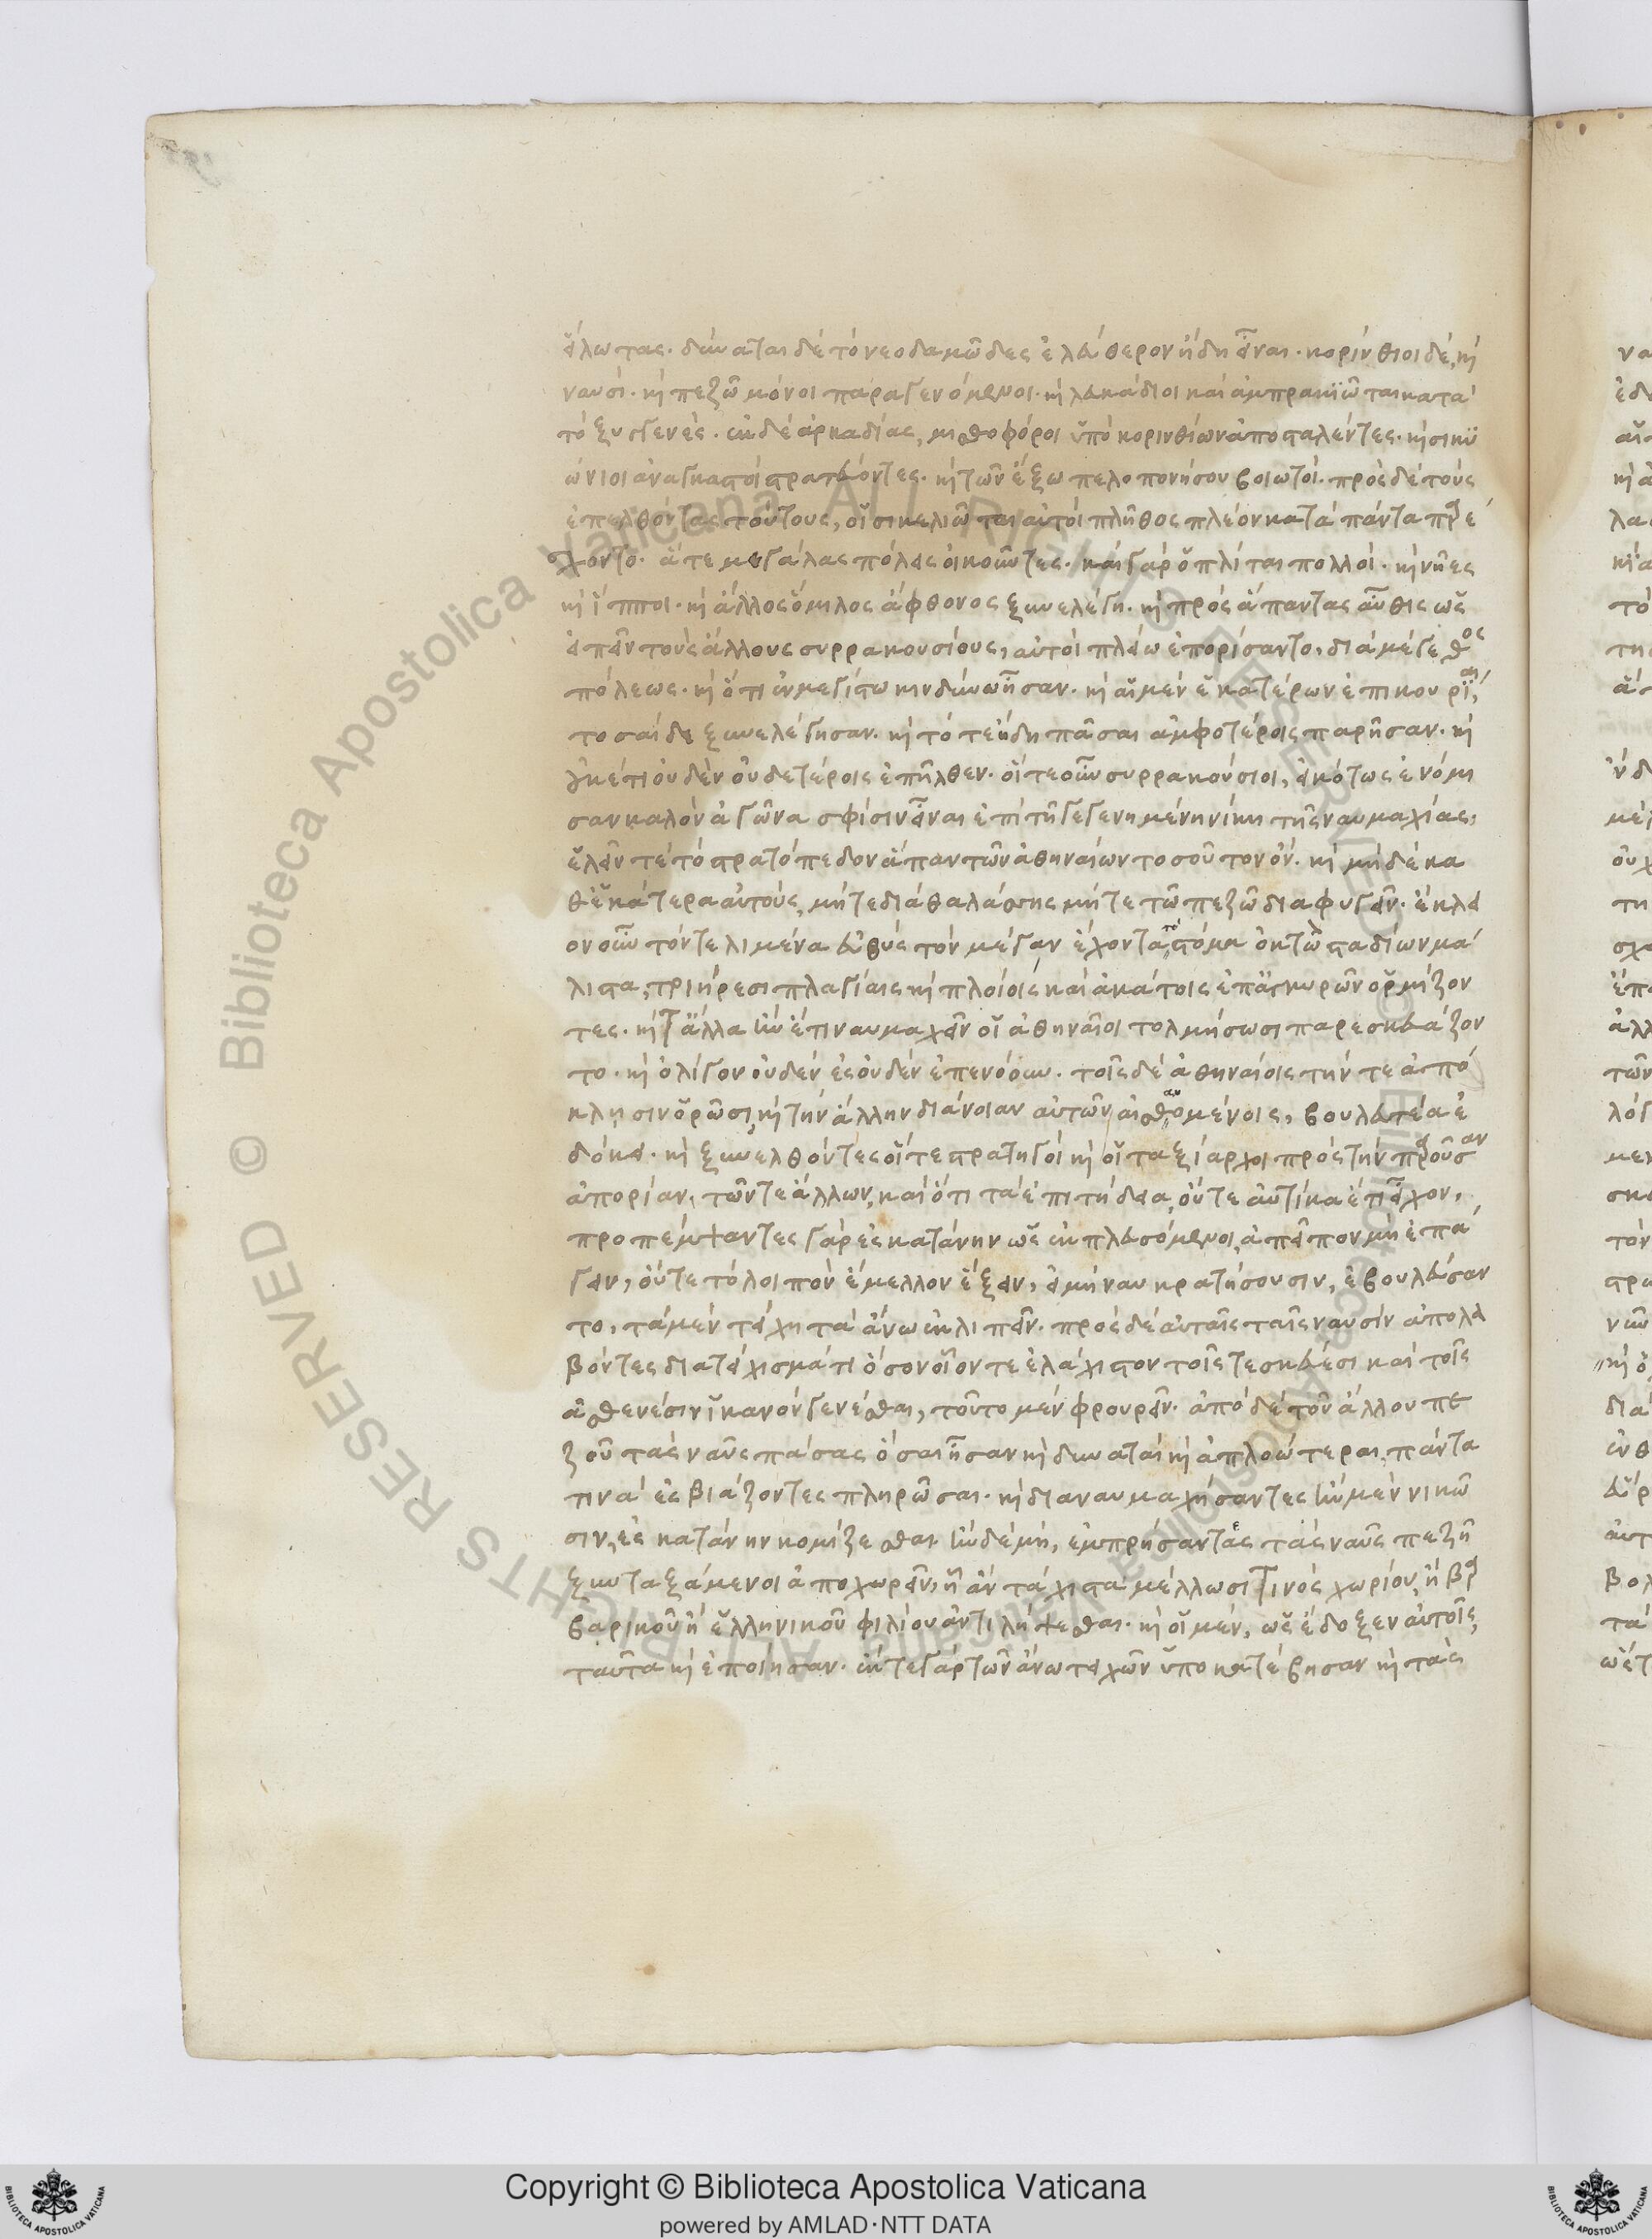 εἵλωτας. δύναται δὲ τὸ νεοδαμῶδες ἐλεύθερον ἤδη εἶναι. κορίνθιοι δὲ, καὶ
ναυσὶ. καὶ πεζῶ μόνοι παραγενόμενοι. καὶ λευκάδιοι καὶ ἀμπρακιῶται κατὰ
τὸ ξυγγενές. ἐκ δὲ ἀρκαδίας, μισθοφόροι ὑπὸ κορινθίων ἀποσταλέντες. καὶ σικυ
ώνιοι ἀναγκαστοὶ στρατεύοντες. καὶ τῶν ἔξω πελοπονήσου βοιωτοί. πρὸς δὲ τοὺς
ἐπελθόντας τούτους, οἱ σικελιῶται αὐτοὶ πλῆθος πλέον κατὰ πάντα παρέ
σχοντο. ἅτε μεγάλας πόλεις οἰκοῦντες. καὶ γὰρ ὁπλίται πολλοί. καὶ νῆες
καὶ ἵπποι. καὶ ἄλλος ὅμιλος ἄφθονος ξυνελέγη. καὶ πρὸς ἅπαντας αὖθις ὡς
εἰπεῖν τοὺς ἄλλους συρρακουσίους, αὐτοὶ πλείω ἐπορίσαντο, διὰ μέγεθος
πόλεως. καὶ ὅτι ἐν μεγίστω κινδύνω ἦσαν. καὶ αἱ μὲν ἑκατέρων ἐπικουρίαι,
τοσαίδε ξυνελέγησαν. καὶ τότε ἤδη πᾶσαι ἀμφοτέροις παρῆσαν. καὶ
οὐκέτι οὐδὲν οὐδετέροις ἐπῆλθεν. οἵ τε οὖν συρρακούσιοι, εἰκότως ἐνόμι
σαν καλὸν ἀγῶνα σφίσιν εἶναι ἐπὶ τῆ γεγενημένη νίκη τῆς ναυμαχίας,
ἑλεῖν τὲ τὸ στρατόπεδον ἅπαν τῶν ἀθηναίων τοσοῦτον ὄν. καὶ μηδὲ κα
θ' ἑκάτερα αὐτοὺς, μήτε διὰ θαλάσσης μήτε τῶ πεζῶ διαφυγεῖν. ἔκλει
ον οὖν τόν τε λιμένα εὐθὺς τὸν μέγαν ἔχοντα τὸ στόμα ὀκτὼ σταδίων μά
λιστα, τριήρεσι πλαγίαις καὶ πλοίοις καὶ ἀκάτοις ἐπ' ἀγκυρῶν ὁρμίζον
τες. καὶ τἄλλα ἢν ἔτι ναυμαχεῖν οἱ ἀθηναῖοι τολμήσωσι παρεσκευάζον
το. καὶ ὀλίγον οὐδὲν ἐς οὐδὲν ἐπενόουν. τοῖς δὲ ἀθηναίοις τήν τε ἀπό
κλησιν ὁρῶσι, καὶ τὴν ἄλλην διάνοιαν αὐτῶν αἰσθανομένοις, βουλευτέα ἐ
δόκει. καὶ ξυνελθόντες οἵ τε στρατηγοὶ καὶ οἱ ταξίαρχοι πρὸς τὴν παροῦσαν
ἀπορίαν, τῶν τε ἄλλων, καὶ ὅτι τὰ ἐπιτήδεια, οὔτε αὐτίκα ἔτι εἶχον,
προπέμψαντες γὰρ ἐς κατάνην ὡς ἐκπλευσόμενοι, ἀπεῖπον μὴ ἐπά
γειν, οὔτε τὸ λοιπὸν ἔμελλον ἕξειν, εἰ μὴ ναυκρατήσουσιν, ἐβουλεύσαν
το, τὰ μὲν τείχη τὰ ἄνω ἐκλιπεῖν. πρὸς δὲ αὐταῖς ταῖς ναυσὶν ἀπολα
βόντες διατειχίσματι ὅσον οἷόν τε ἐλάχιστον τοῖς τε σκεύεσι καὶ τοῖς
ἀσθενέσιν ἱκανὸν γενέσθαι, τοῦτο μὲν φρουρεῖν. ἀπὸ δὲ τοῦ ἄλλου πε
ζοῦ τὰς ναῦς πάσας ὅσαι ἦσαν καὶ δυναταὶ καὶ ἀπλοώτεραι, πάντα
τινὰ ἐσβιάζοντες πληρῶσαι. καὶ διαναυμαχήσαντες ἢν μὲν νικῶ
σιν, ἐς κατάνην κομίζεσθαι. ἢν δὲ μὴ, ἐμπρήσαντες τὰς ναῦς πεζῆ
ξυνταξάμενοι ἀποχωρεῖν, ἧ ἂν τάχιστα μέλλωσί τινος χωρίου, ἢ βαρ
βαρικοῦ ἢ ἑλληνικοῦ φιλίου ἀντιλήψεσθαι. καὶ οἱ μὲν, ὡς ἔδοξεν αὐτοῖς,
ταῦτα καὶ ἐποίησαν. ἔκ τε γὰρ τῶν ἄνω τειχῶν ὑποκατέβησαν καὶ τὰς
Copyright © Biblioteca Apostolica Vaticana
powered by AMLAD·NTT DATA